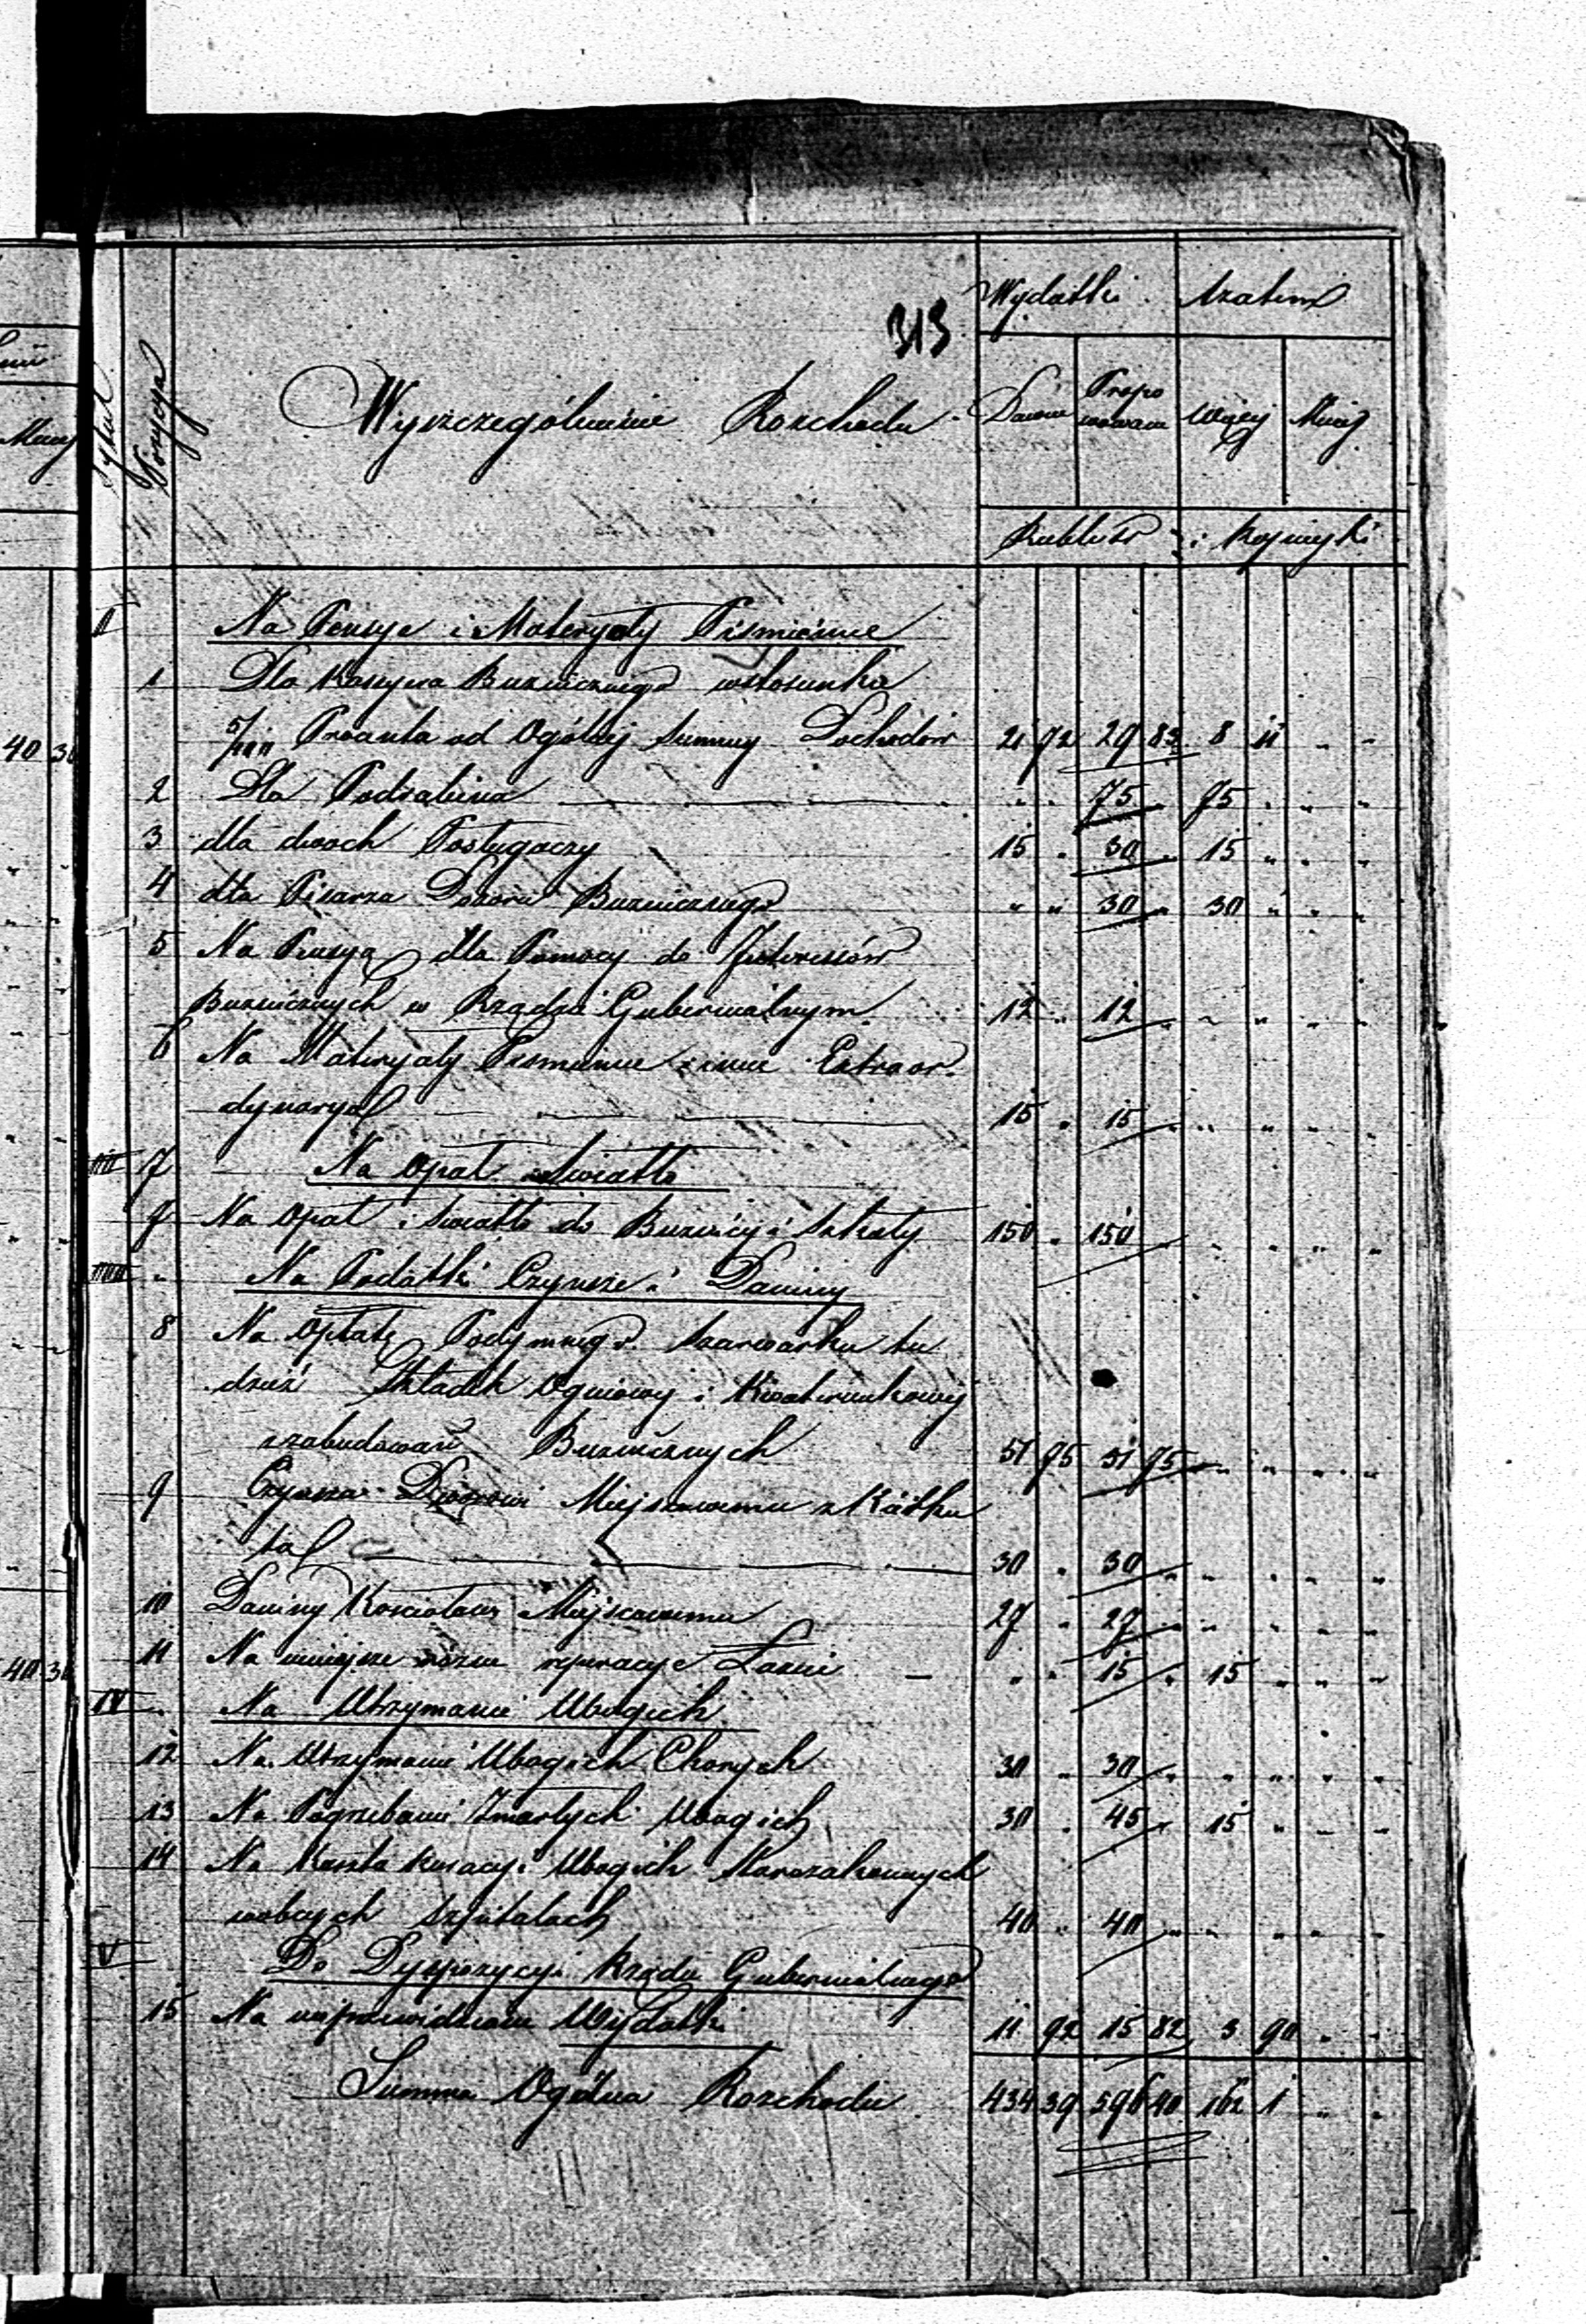 313
Tytuł
Pozycya
Wyszczególnienie Rozchodu
Wydatki
Zatem
Dawne
Propo
nowane
Więcej
Mniej
Rubli sr i Kopiejki
Na Pensye i Materyały Piśmienne
1 Dla Kassyera Bużniczego w stosunku
5/100 Procentu od Ogólnej Summy Dochodów 21 72 29 83 8 11 " "
2 Dla Podrabina " " 75 " 75 " " "
3 dla dwóch Posługaczy 15 " 30 " 15 " " "
4 dla Pisarza Dozoru Bużniczego " " 30 " 30 " " "
5 Na Pensyą dla Pomocy do Interessów
Bużniczych w Rządzie Gubernialnym 12 " 12 " " " " "
6 Na Materyały Piśmienne i inne Extraor-
dynarya 15 " 15 " " " " "
III 7 Na Opał i Światło
7 Na Opał i Światło do Bużnicy i Szkoły 150 " 150 " " " "
" Na Podatki Czynsze i Daniny
8 Na Opłatę Podymnego Szarwarku tu
dzież Składek Ogniowej i Kwaterunkowej
z zabudowań Bużniczych 51 75 51 75 " " " "
9 Czynsz Dworowi Miejscowemu z
30 " 30 " " " " "
10 Daniny Kościołowi Miejscowemu 27 " 27 " " " " "
11 Na mniejsze różne reperacye Łaźni — " " 15 " 15 " " "
IV " Na Utrzymanie Ubogich
12 Na Utrzymanie Ubogich Chorych 30 " 30 " " " " "
13 Na Pogrzebanie Zmarłych Ubogich 30 " 45 " 15 " " "
14 Na Koszta Kuracyi Ubogich Starozakonnych
w obcych Szpitalach 40 " 40 " " " " "
V Do Dyspozycyi Rządu Gubernialnego
15 Na nieprzewidziane Wydatki 11 92 15 82 3 90 " "
Summa Ogólna Rozchodu 434 39 596 40 162 1 " "
40 3
40 3